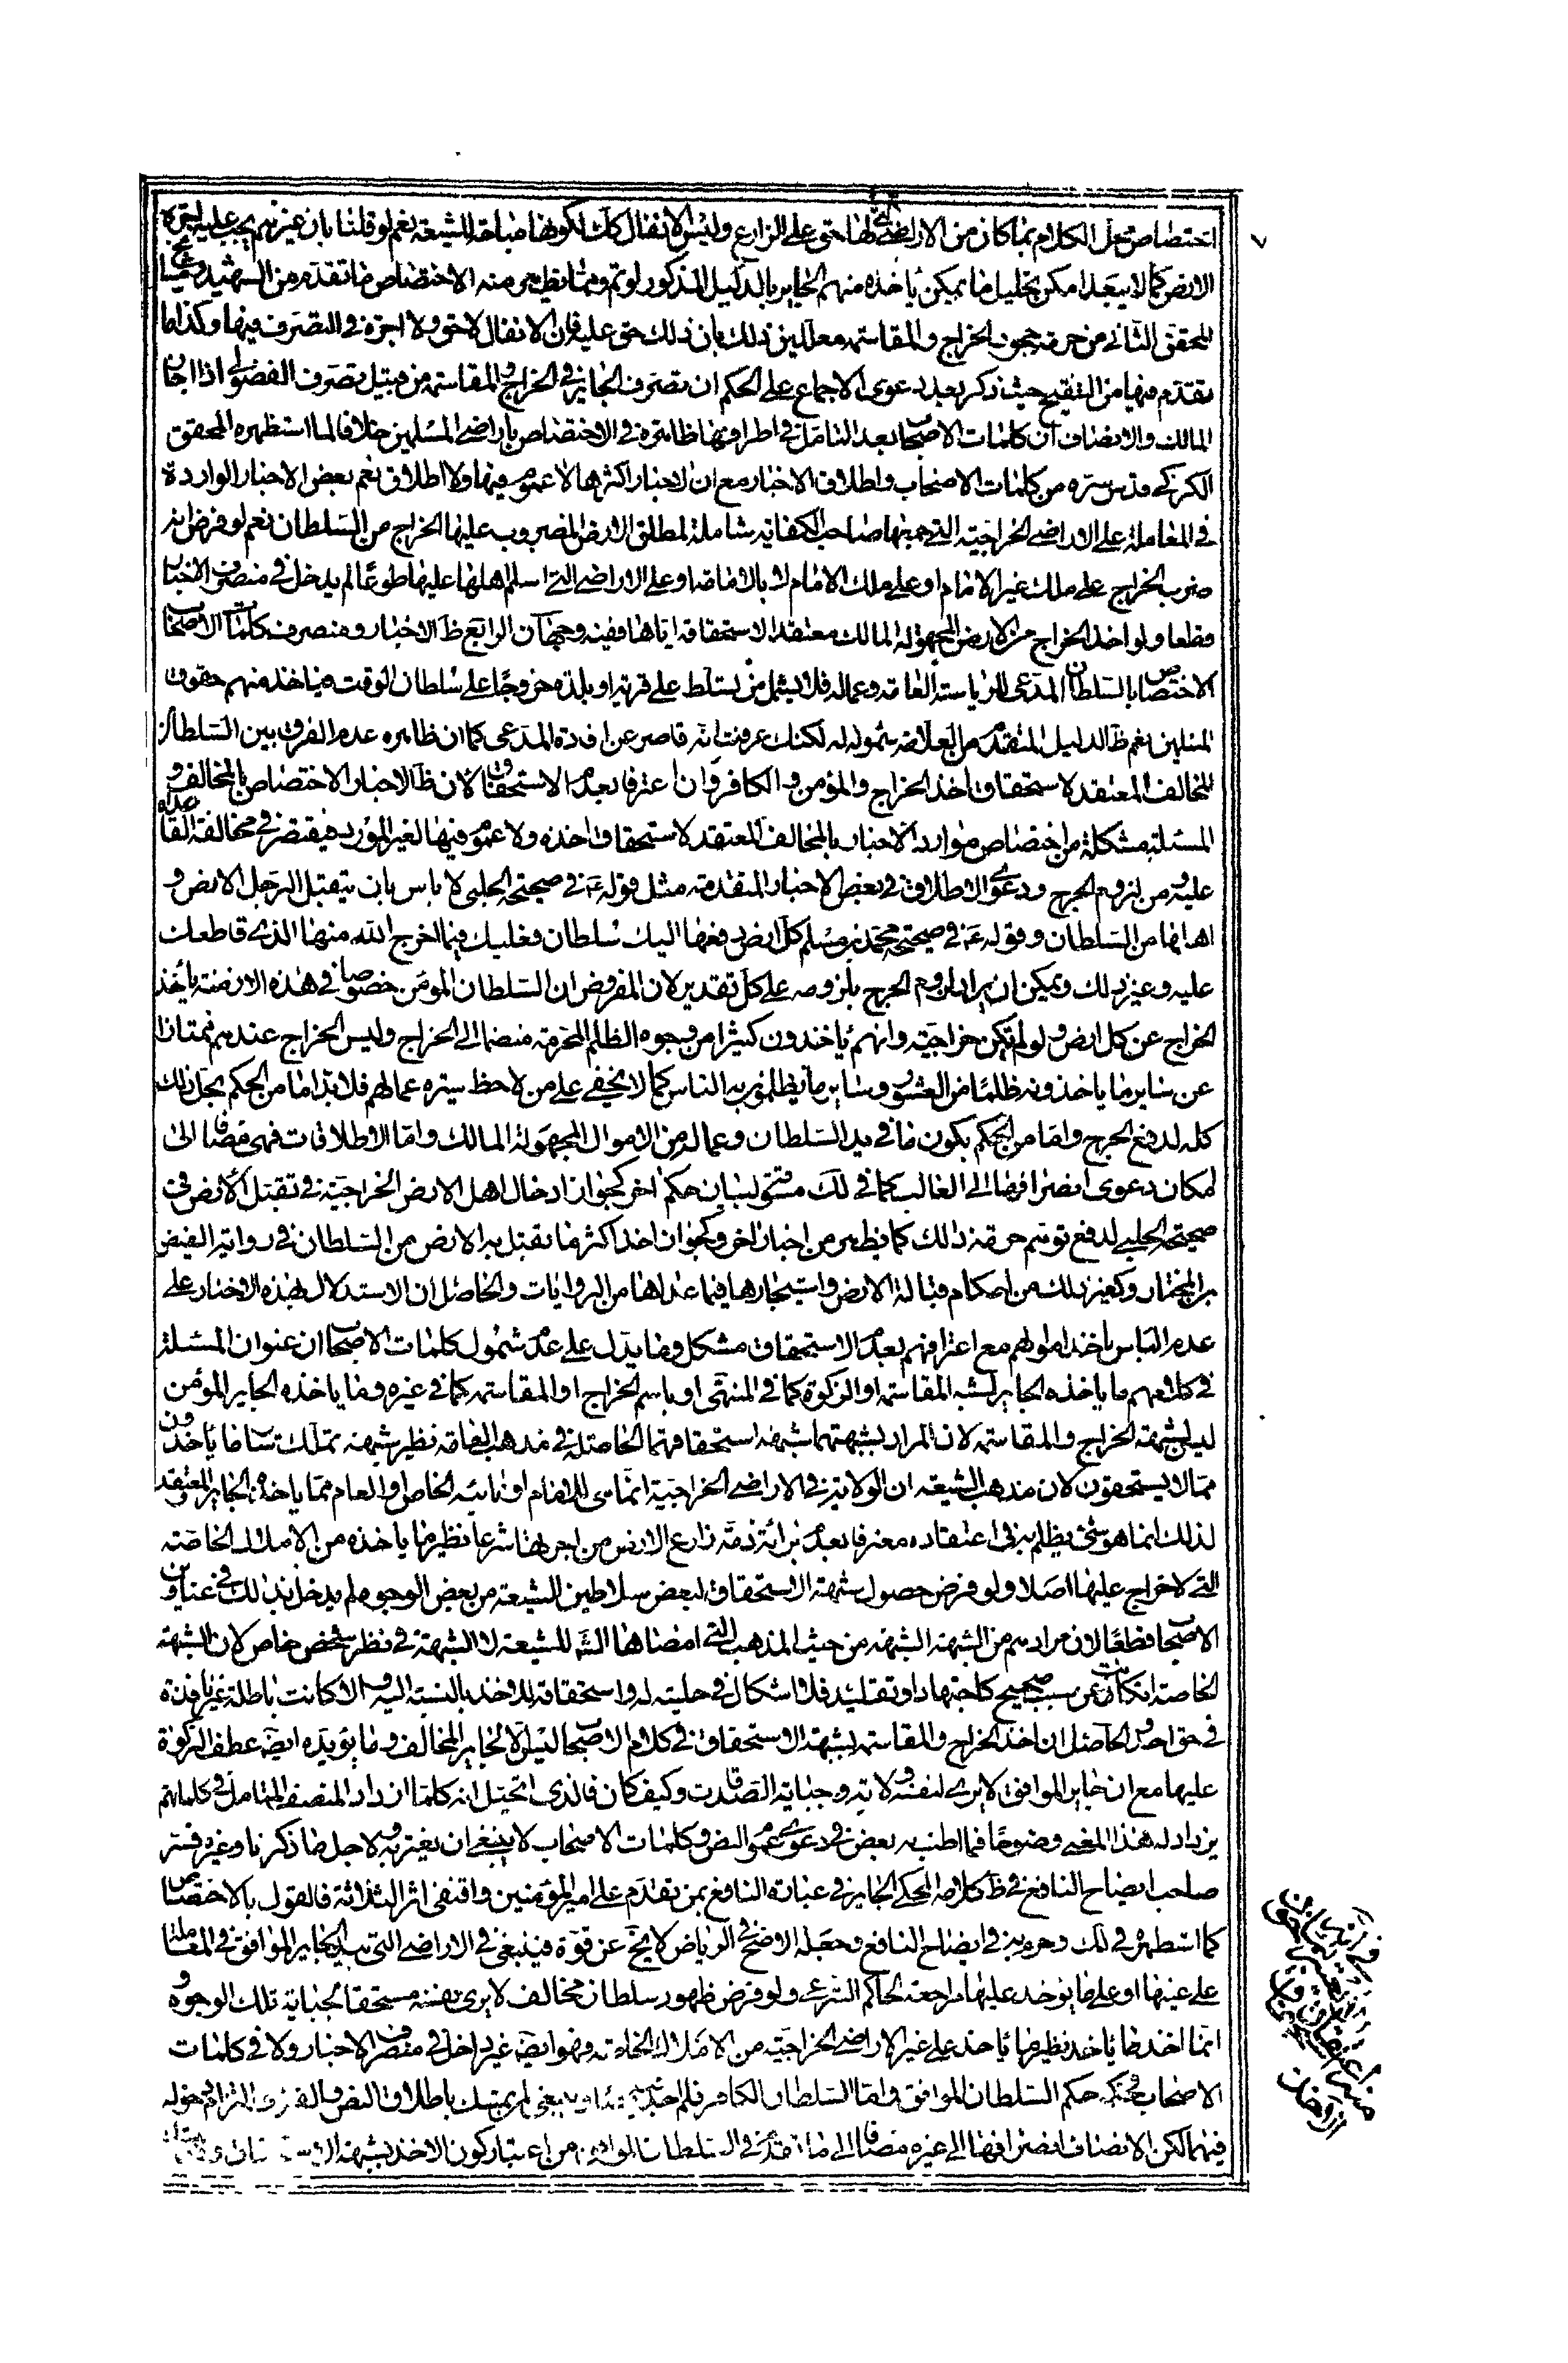 اختصاص محل الكلام بما كان من الاراضى التى لها حق على الزارع وليس الانفال كك لكونها مباحة للشيعة نعم لو قلنا بان غيرهم يجب عليه اجرة
الارض كما لا يبعد امكن تحليل ما يمكن ياخذه منهم الجاير بالدليل المذكور لو تم ومما يظهر منه الاختصاص ما تقدم من الشهيد ومشايخ
المحقق الثانى من حرمة جحود الخراج والمقاسمة معللين ذلك بان ذلك حق عليه فان الانفال لا حق ولا اجرة فى التصرف فيها وكذا ما
تقدم منها من التنقيح حيث ذكر بعد دعوى الاجماع على الحكم ان تصرف الجاير فى الخراج والمقاسمة من قبيل تصرف الفضولى اذا اجاز
المالك والانصاف ان كلمات الاصحاب بعد التامل فى اطرافها ظاهرة فى الاختصاص باراضى المسلمين خلافا لما استظهره المحقق
الكركى قدس سره من كلمات الاصحاب واطلاق الاخبار مع ان الاخبار اكثرها لا عموم فيها ولا اطلاق نعم بعض الاخبار الواردة
فى المعاملة على الاراضى الخراجية التى جمعها صاحب الكفاية شاملة لمطلق الارض المضروب عليها الخراج من السلطان نعم لو فرض انه
ضرب الخراج على ملك غير الامام او على ملك الامام لا بالامامة او على الاراضى التى اسلم اهلها عليها طوعا لم يدخل فى منصرف الاخبار
قطعا ولو اخذ الخراج من الارض المجهولة المالك معتقدا لاستحقاقه اياها ففيه وجهان الرابع ظ الاخبار ومنصرف كلمات الاصحاب
الاختصاص بالسلطان المدعى للرياسة العامة وعماله فلا يشمل من تسلط على قرية او بلدة خروجا على سلطان الوقت فياخذ منهم حقوق
المسلمين نعم ظ الدليل المتقدم من العلامة شموله له لكنك عرفت انه قاصر عن افادة المدعى كما ان ظاهره عدم الفرق بين السلطان
المخالف المعتقد لاستحقاق اخذ الخراج والمؤمن والكافر وان اعترفا بعدم الاستحقاق الا ان ظ الاخبار الاختصاص بالمخالف و
المسئلة مشكلة من اختصاص موارد الاخبار بالمخالف المعتقد لاستحقاق اخذه ولا عموم فيها لغير المورد فيقتصر فى مخالفة القاعدة
عليه ومن لزوم الحرج ودعوى الاطلاق فى بعض الاخبار المتقدمة مثل قوله ع فى صحيحة الحلبى لا باس بان يتقبل الرجل الارض و
اهلها من السلطان وقوله ع فى صحيحة محمد بن مسلم كل ارض دفعها اليك سلطان فعليك فيما اخرج الله منها الذى قاطعك
عليه وغير ذلك ويمكن ان يراد لزوم الحرج بلزومه على كل تقدير لان المفروض ان السلطان المؤمن خصوصا فى هذه الازمنة ياخذ
الخراج عن كل ارض ولو لم تكن خراجية وانهم ياخذون كثيرا من وجوه الظلم المحرمة منضما الى الخراج وليس الخراج عندهم ممتازا
عن ساير ما ياخذونه ظلما من العشور وساير ما يظلمون به الناس كما لا يخفى على من لاحظ سيرة عمالهم فلا بد اما من الحكم بحل ذلك
كله لدفع الحرج واما من الحكم بكون ما فى يد السلطان وعماله من الاموال المجهولة المالك واما الاطلاقات فهى مضافا الى
امكان دعوى انصرافها الى الغالب كما فى لك مسوقة لبيان حكم اخر كجواز ادخال اهل الارض الخراجية فى تقبل الارض فى
صحيحة الحلبى لدفع توهم حرمة ذلك كما يظهر من اخبار اخر وكجواز اخذ اكثر مما تقبل به الارض من السلطان فى رواية الفيض
بن المختار وكغير ذلك من احكام قبالة الارض واستيجارها فيما عداها من الروايات والحاصل ان الاستدلال بهذه الاخبار على
عدم الباس باخذ اموالهم مع اعترافهم بعدم الاستحقاق مشكل ومما يدل على عدم شمول كلمات الاصحاب ان عنوان المسئلة
فى كلامهم ما ياخذه الجاير لشبهة المقاسمة او الزكوة كما فى المنتهى او باسم الخراج او المقاسمة كما فى غيره وما ياخذه الجاير المؤمن
ليس لشبهة الخراج والمقاسمة لان المراد بشبهتهما شبهة استحقاقهما الحاصلة فى مذهب العامة نظير شبهة تملك ساير ما ياخذون
مما لا يستحقون لان مذهب الشيعة ان الولاية فى الاراضى الخراجية انما هى للامام او نائبه الخاص او العام فما ياخذه الجاير المعتقد
لذلك انما هو شىء يظلم به فى اعتقاده معترفا بعدم برائة ذمة زارع الارض من اجرتها شرعا نظير ما ياخذه من الاملاك الخاصة
التى لا خراج عليها اصلا ولو فرض حصول شبهة الاستحقاق لبعض سلاطين الشيعة من بعض الوجوه لم يدخل بذلك فى عناوين
الاصحاب قطعا لان مرادهم من الشبهة الشبهة من حيث المذهب التى امضاها الشارع للشيعة لا الشبهة فى نظر شخص خاص لان الشبهة
الخاصة ان كانت عن سبب صحيح كاجتهاد او تقليد فلا اشكال فى حليته له واستحقاقه للاخذ بالنسبة اليه والا كانت باطلة غير نافذة
فى حق احد والحاصل ان اخذ الخراج والمقاسمة لشبهة الاستحقاق فى كلام الاصحاب ليس الا الجاير المخالف ومما يؤيده ايضا عطف الزكوة
عليها مع ان الجاير الموافق لا يرى لنفسه ولاية جباية الصدقات وكيف كان فالذى اتخيل انه كلما ازداد المنصف المتامل فى كلماتهم
يزداد له هذا المعنى وضوحا فما اطنب به بعض فى دعوى عموم النص وكلمات الاصحاب لا ينبغى ان يغتر به ولاجل ما ذكرنا وغيره فسر
صاحب ايضاح النافع فى ظ كلامه المحكى الجاير فى عبارة النافع بمن تقدم على امير المؤمنين واقتفى اثر الثلاثة فالقول بالاختصاص
كما استظهره فى لك وجزم به فى ايضاح النافع وجعله الاصح فى الرياض لا يخلو عن قوة فينبغى فى الاراضى التى بيد الجاير الموافق فى المعاملة
على عينها او على ما يؤخذ عليها مراجعة الحاكم الشرعى ولو فرض ظهور سلطان مخالف لا يرى نفسه مستحقا لجباية تلك الوجوه و
انما اخذ ما ياخذ نظير ما ياخذه على غير الاراضى الخراجية من الاملاك الخاصة فهو ايضا غير داخل فى منصرف الاخبار ولا فى كلمات
الاصحاب فحكمه حكم السلطان الموافق واما السلطان الكافر فلم اجد فيه نصا وينبغى لمن تمسك باطلاق النص والفتوى التزام دخوله
فيهما لكن الانصاف انصرافهما الى غيره مضافا الى ما تقدم فى السلطان الموافق من اعتبار كون الاخذ بشبهة